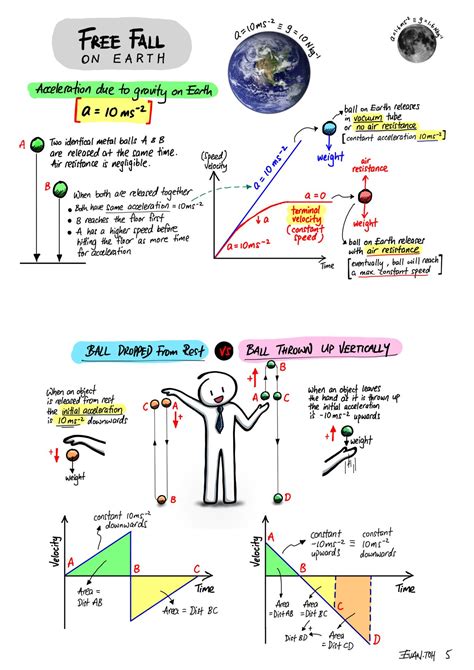 FREE FALL
ON EARTH
a=10ms⁻² ≡ g=10Nkg⁻¹
a=1.6ms⁻² ≡ g=1.6Nkg⁻¹
Acceleration due to gravity on Earth
[a = 10 ms⁻²]
A
B
Two identical metal balls A & B
are released at the same time.
Air resistance is negligible.
When both are released together
• Both have same acceleration = 10ms⁻²
• B reaches the floor first
• A has a higher speed before
hitting the floor as more time
for acceleration
(Speed)
Velocity
a = 10 ms⁻²
a = 10ms⁻²
a = 0
terminal
velocity
(constant
speed)
Time
weight
ball on Earth releases
in vacuum tube
or no air resistance
[constant acceleration 10ms⁻²]
air
resistance
weight
ball on Earth releases
with air resistance
[eventually, ball will reach
a max. constant speed]
BALL DROPPED from Rest
VS
BALL THROWN UP VERTICALLY
When an object
is released from rest
the initial acceleration
is 10ms⁻² downwards
+
weight
C
A
+
B
+
B
A
C
D
When an object leaves
the hand as it is thrown up
the initial acceleration
is -10ms⁻² upwards
+
weight
Velocity
constant 10ms⁻²
downwards
A
B
C
Time
Area =
Dist AB
Area = Dist BC
Velocity
A
constant
-10ms⁻²
upwards
≡
constant
10ms⁻²
downwards
B
Time
C
D
Area
=Dist AB
Area =
Dist BC
Dist BD
+
Area =
Dist CD
EVAN.TOH 5